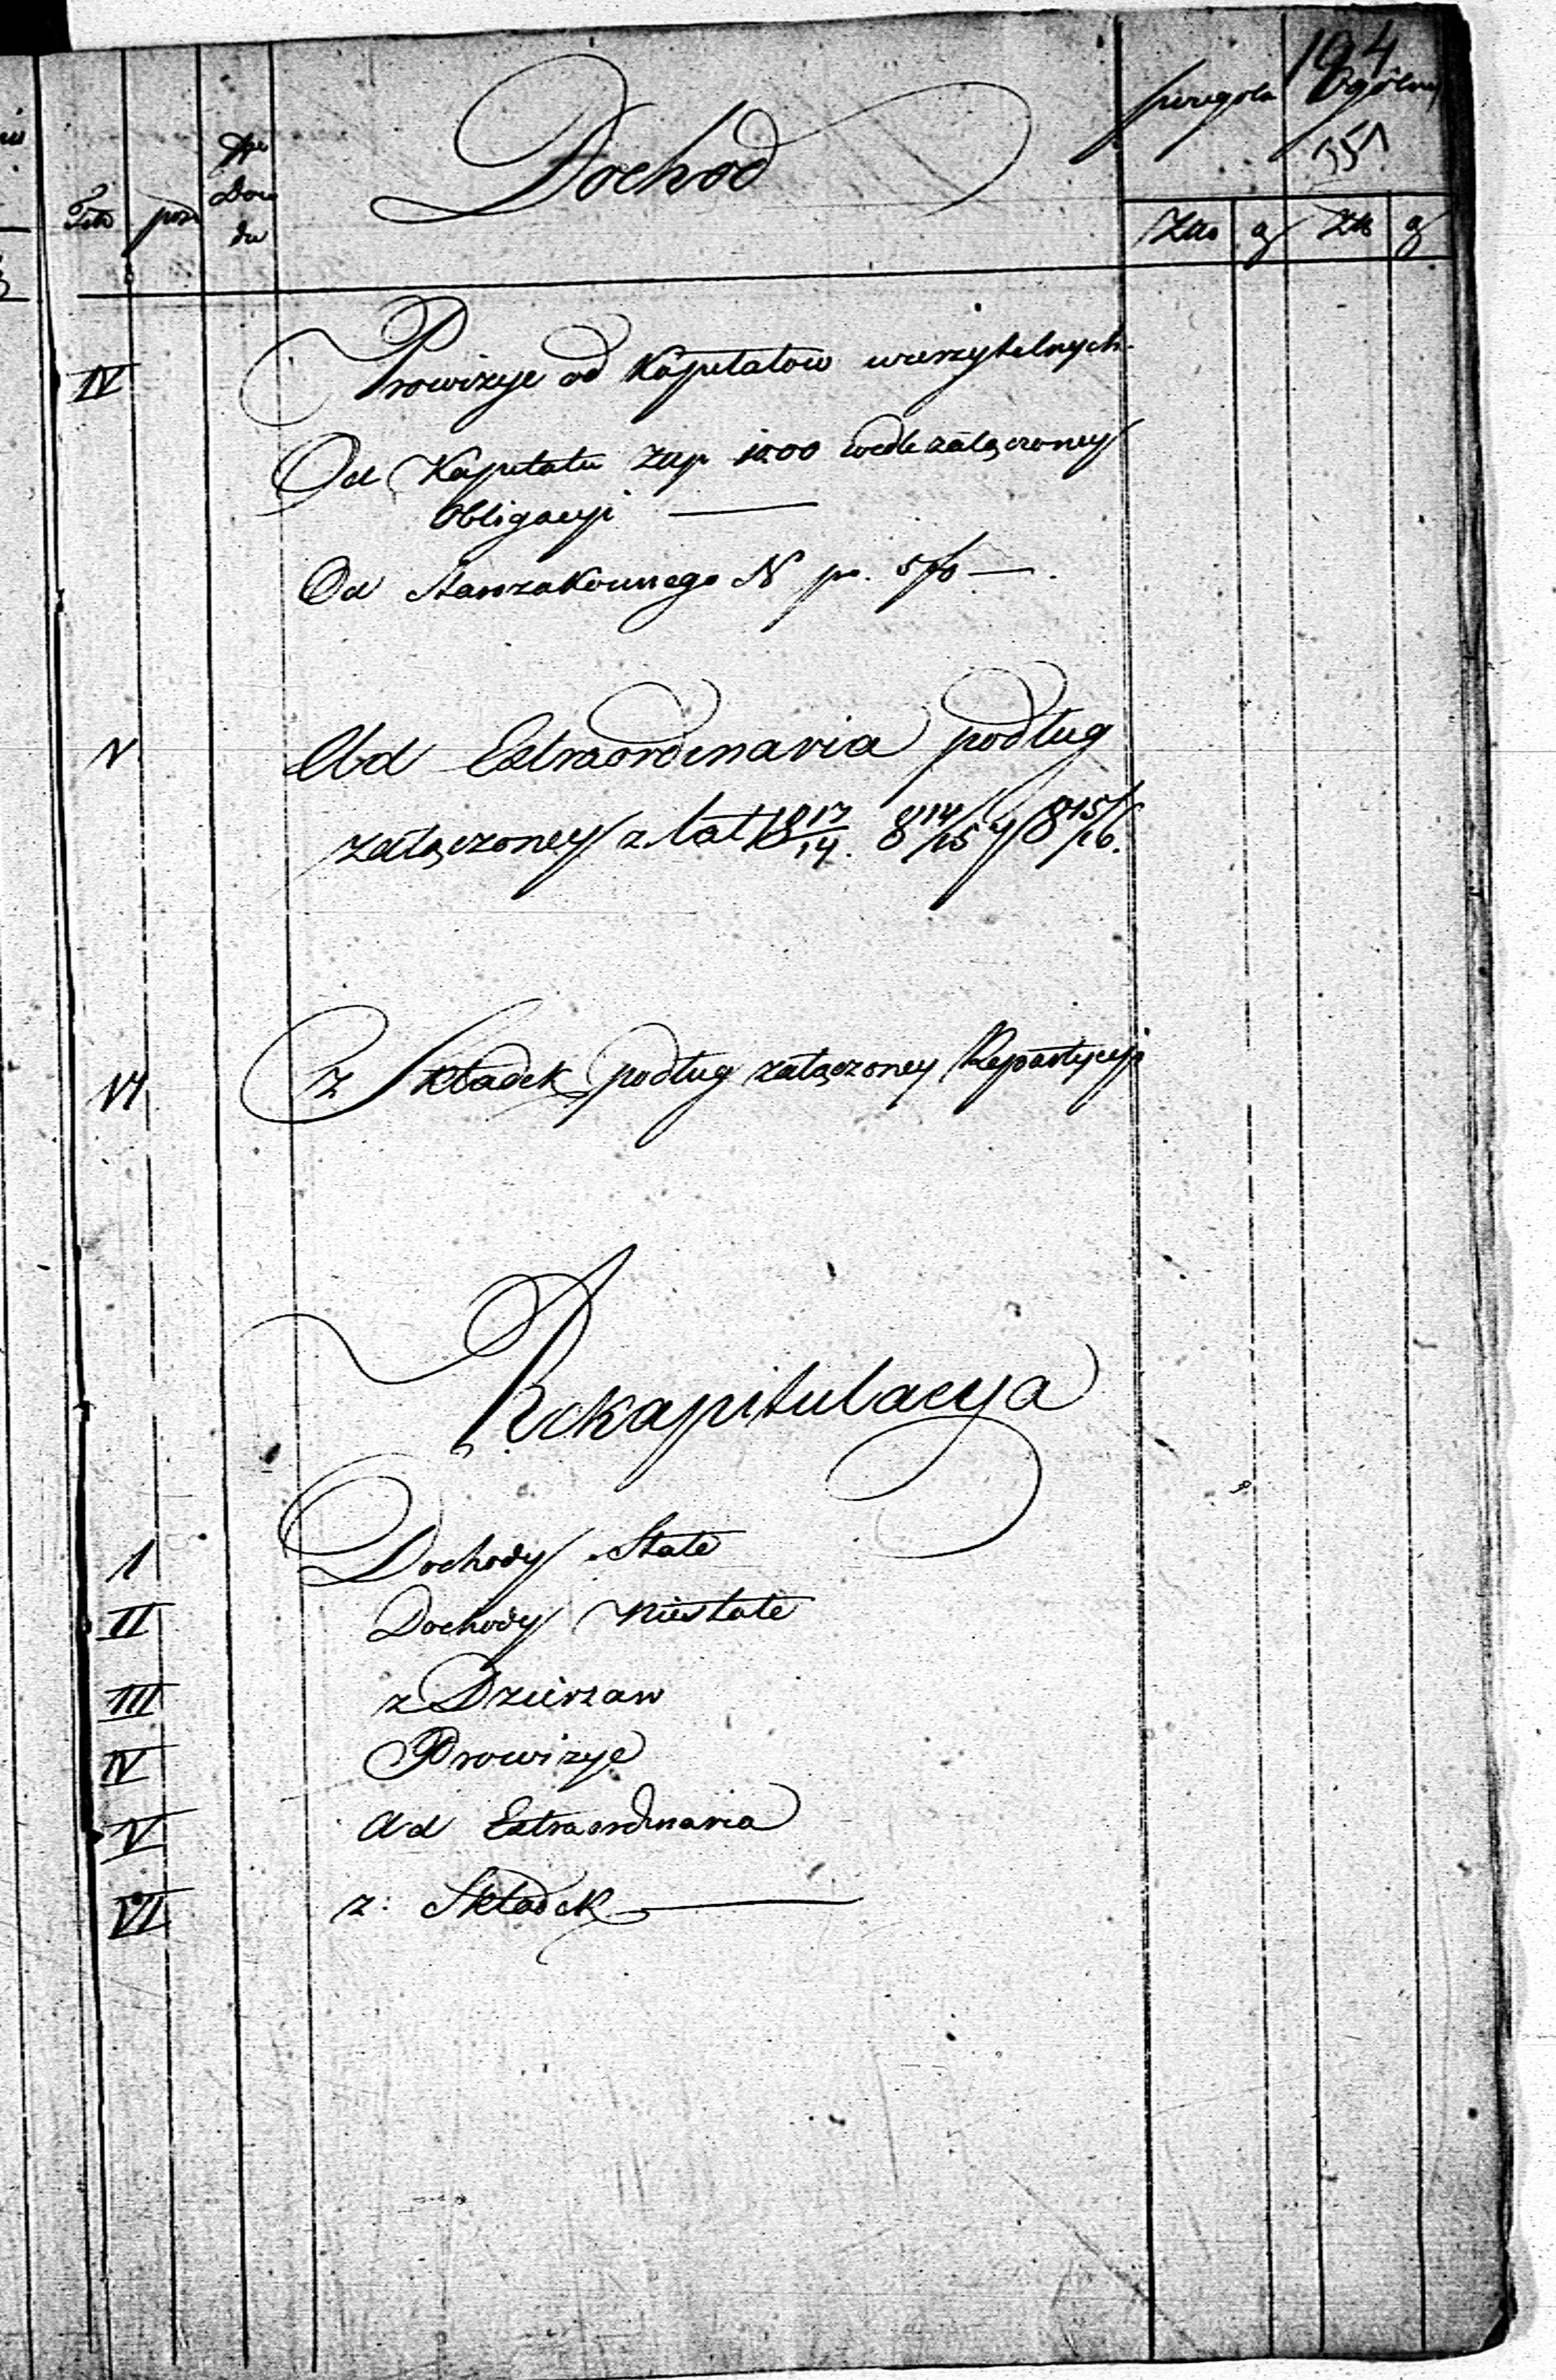 194
Dochod
Ogólny
351
Tito
Dowo
du
Zło g Zło g
IV Prowizye od Kapitałow wierzytelnych
Od Kapitału Złp 1000 wedle załączoney
Obligacyi
Od N po. 5/00
V Ad Extraordinaria podług
załączoney z lat 18 13/14. 8 14/15 y 8 15/16.
VI Z Składek podług załączoney Repartycyi
Rekapitulacya
I Dochody Stałe
II Dochody Niestałe
III z Dzierzaw
IV Prowizye
V Ad Extraordinaria
VI z: Składek